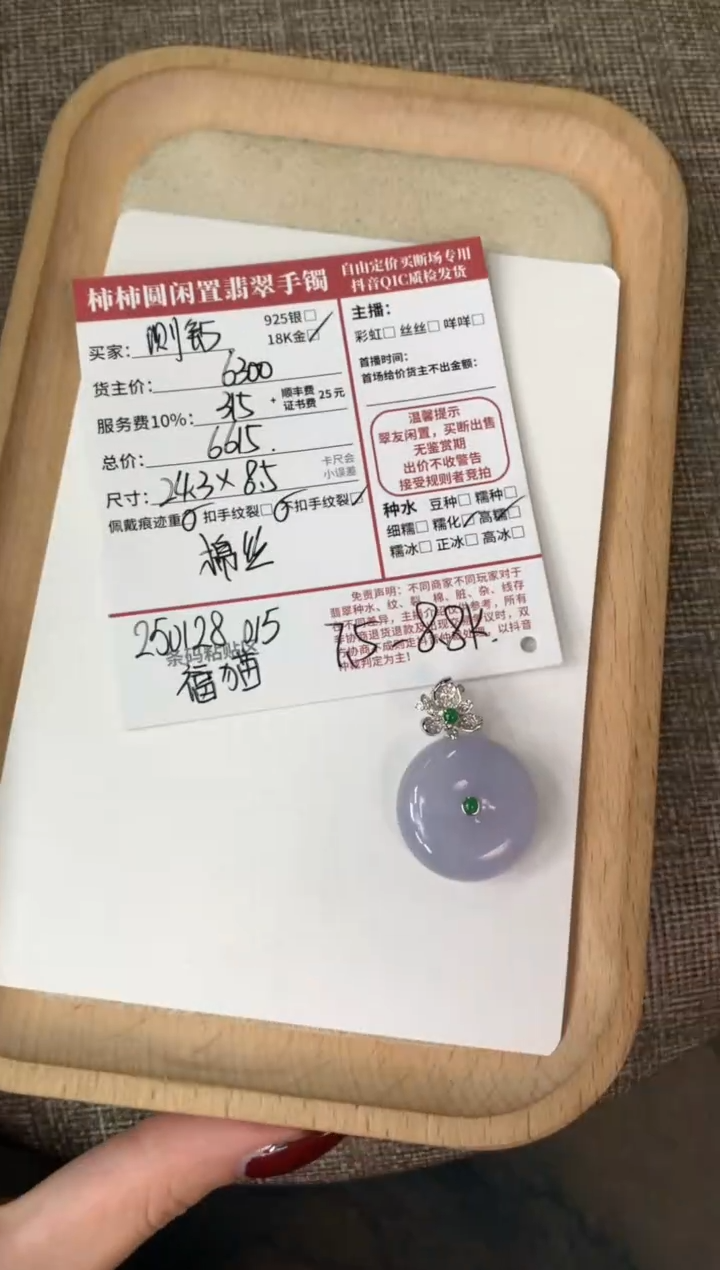 柿柿圆闲置翡翠手镯
自由定价买断场专用
抖音QIC质检发货
买家：测钻
925银□
18K金□
货主价：6300
服务费10%：315 + 顺丰费 证书费 25元
总价：6615.
尺寸：24.3×8.5
卡尺会
小误差
佩戴痕迹重 扣手纹裂□ 不扣手纹裂□
棉丝
主播：
彩虹□ 丝丝□ 咩咩□
首播时间：
首场给价货主不出金额：
温馨提示
翠友闲置，买断出售
无鉴赏期
出价不收警告
接受规则者竞拍
种水 豆种□ 糯种□
细糯□ 糯化□ 高糯□
糯冰□ 正冰□ 高冰□
免责声明：不同商家不同玩家对于
翡翠种水、纹、裂、棉、脏、杂、线存
250128 015
条码粘贴区
7.5-8.8K.
仲裁判定为主！